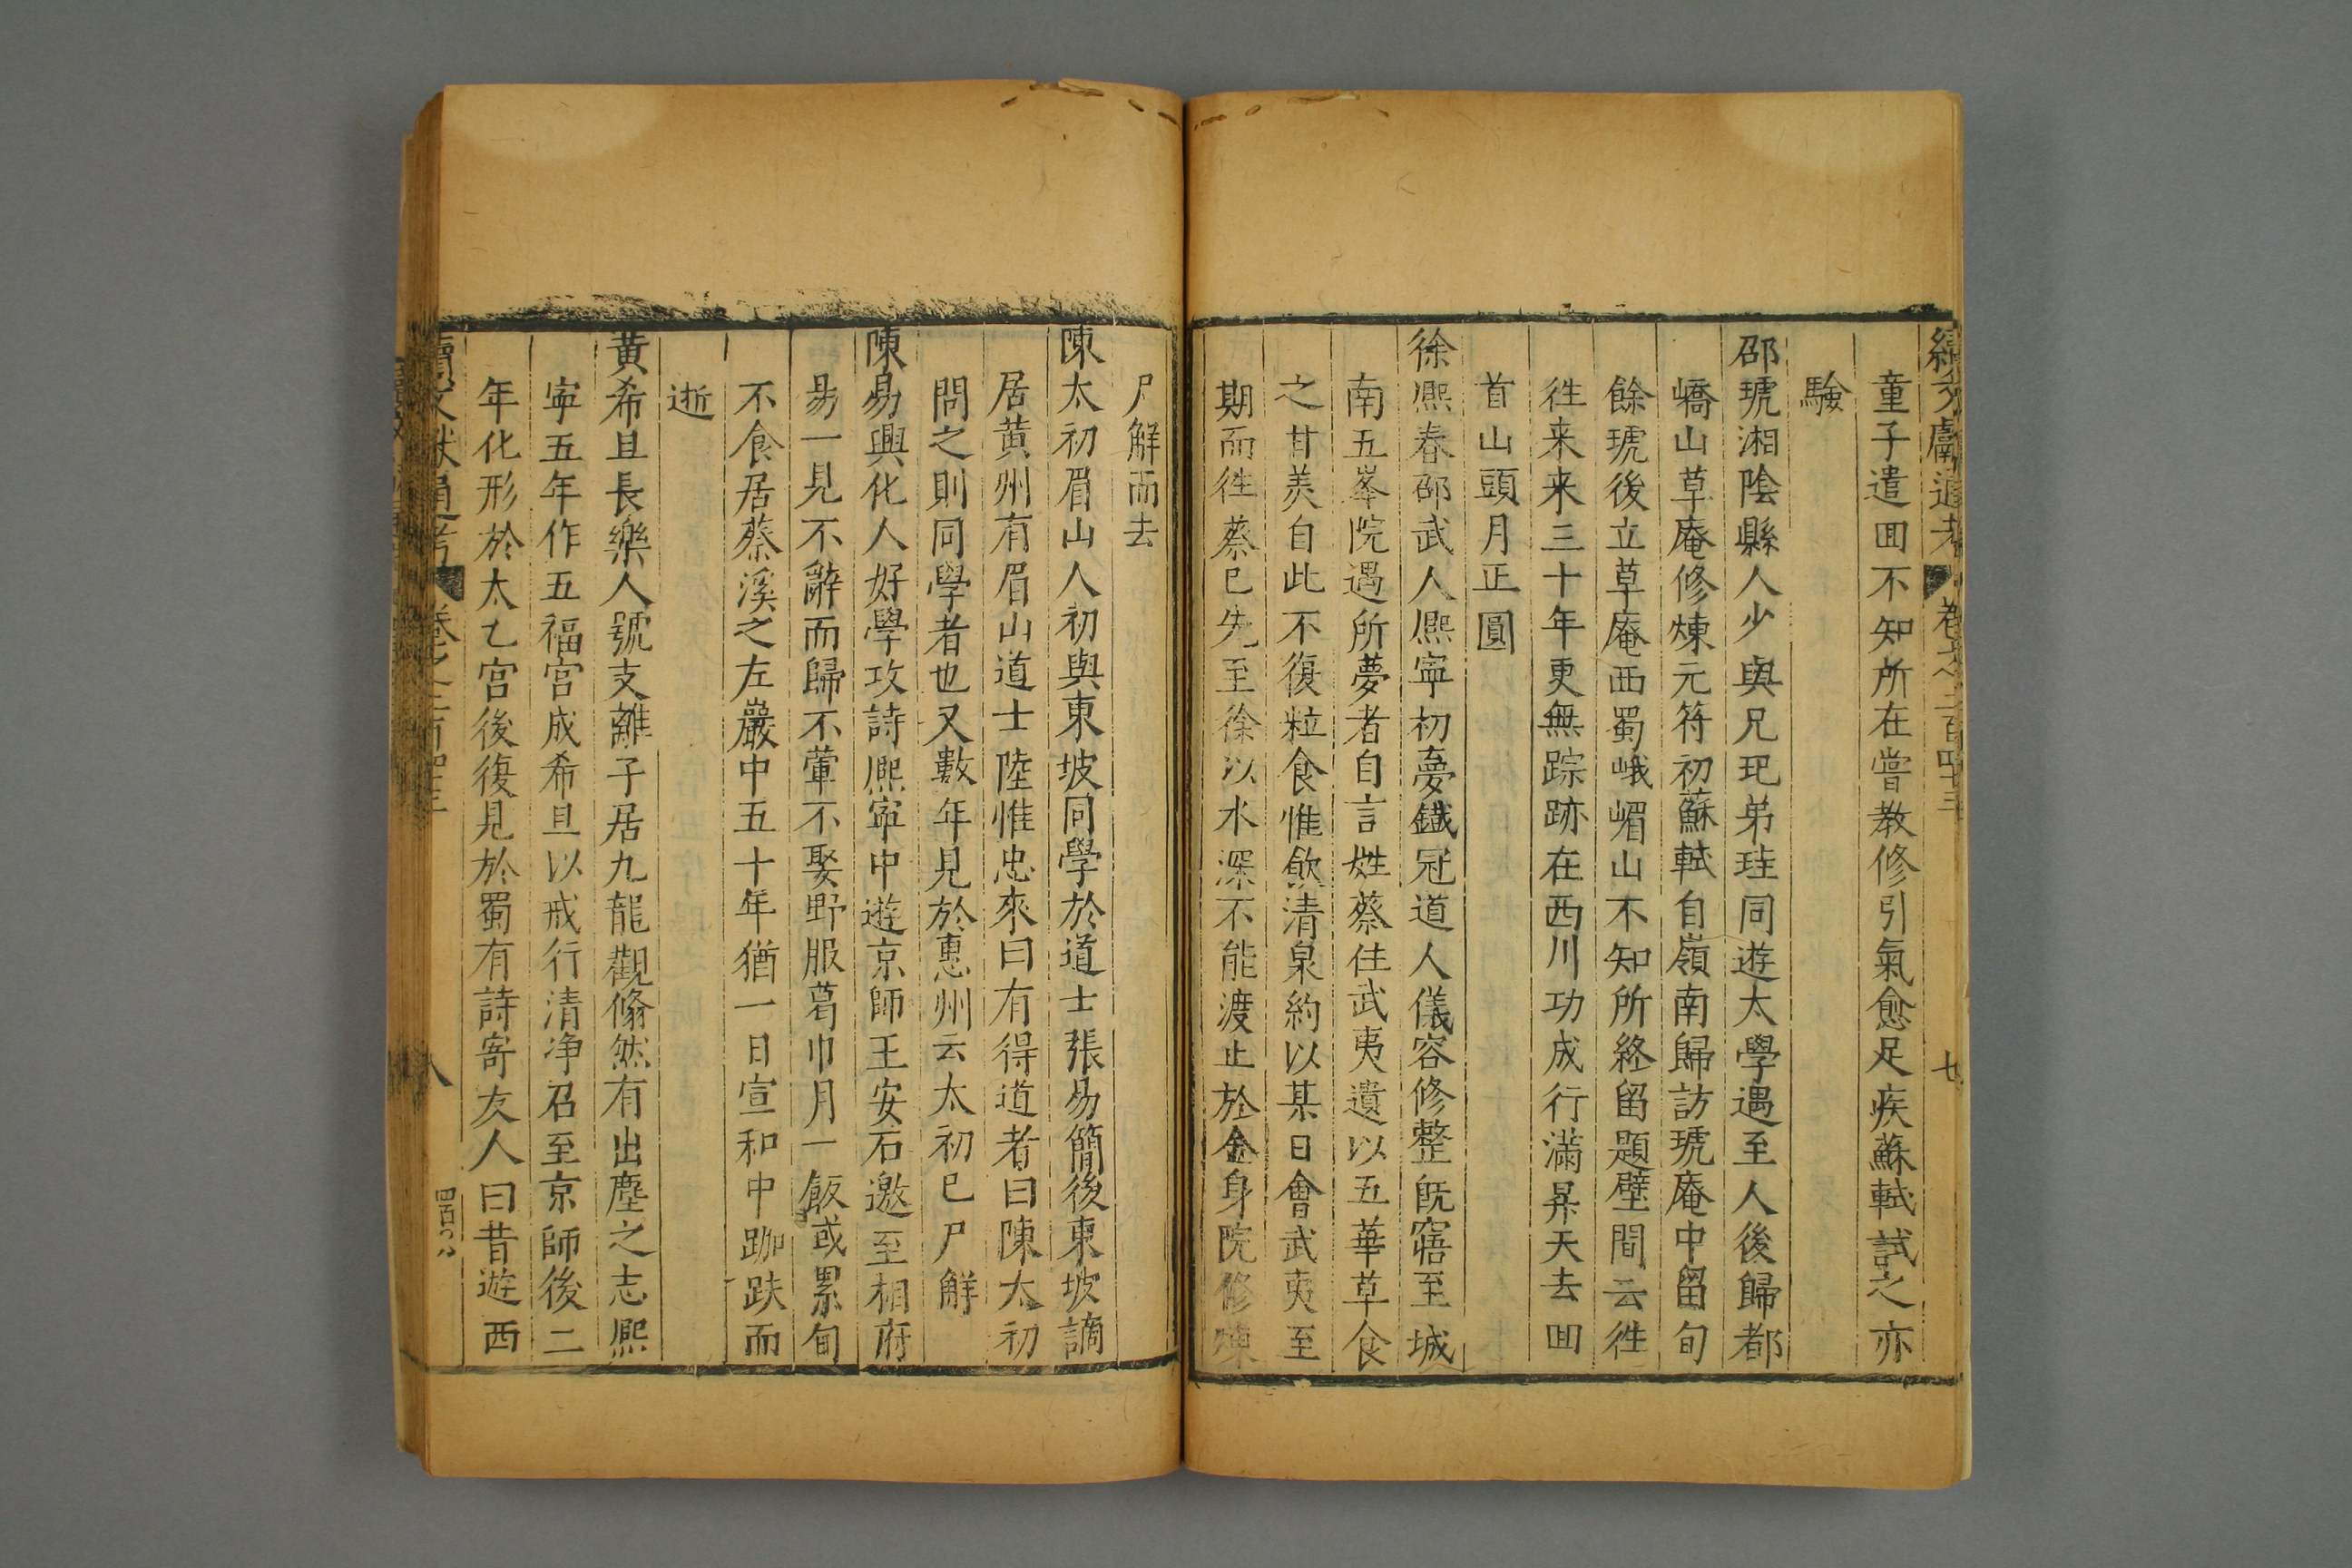 續文獻通考 卷之二百四十三 七
童子遣囬不知所在嘗教修引氣愈足疾蘇軾試之亦
驗
邵琥湘陰縣人少與兄𤣱弟珪同遊太學遇至人後歸都
嶠山草庵修煉元符初蘇軾自嶺南歸訪琥庵中留旬
餘琥後立草庵西蜀峨嵋山不知所終留題壁間云徃
徃来来三十年更無踪跡在西川功成行滿昇天去囬
首山頭月正圓
徐熈春邵武人熈寧初夢鐡冠道人儀容修整旣寤至城
南五峯院遇所夢者自言姓蔡住武夷遺以五華草食
之甘美自此不復粒食惟飲清泉約以某日會武夷至
期而徃蔡已先至徐以水深不能渡止於金身院修煉
尸解而去
陳太初眉山人初與東坡同學於道士張易簡後東坡謫
居黄州有眉山道士陸惟忠來曰有得道者曰陳太初
問之則同學者也又數年見於惠州云太初已尸解
陳易興化人好學攻詩熈寧中遊京師王安石邀至相府
易一見不辭而歸不葷不娶野服葛巾月一飯或累旬
不食居蔡溪之左巖中五十年猶一日宣和中跏趺而
逝
黄希旦長樂人號支離子居九龍觀翛然有出塵之志熈
寧五年作五福宫成希旦以戒行清净召至京師後二
年化形於太乙宫後復見於蜀有詩寄友人曰昔遊西
續文獻通考 卷之二百四十三 八